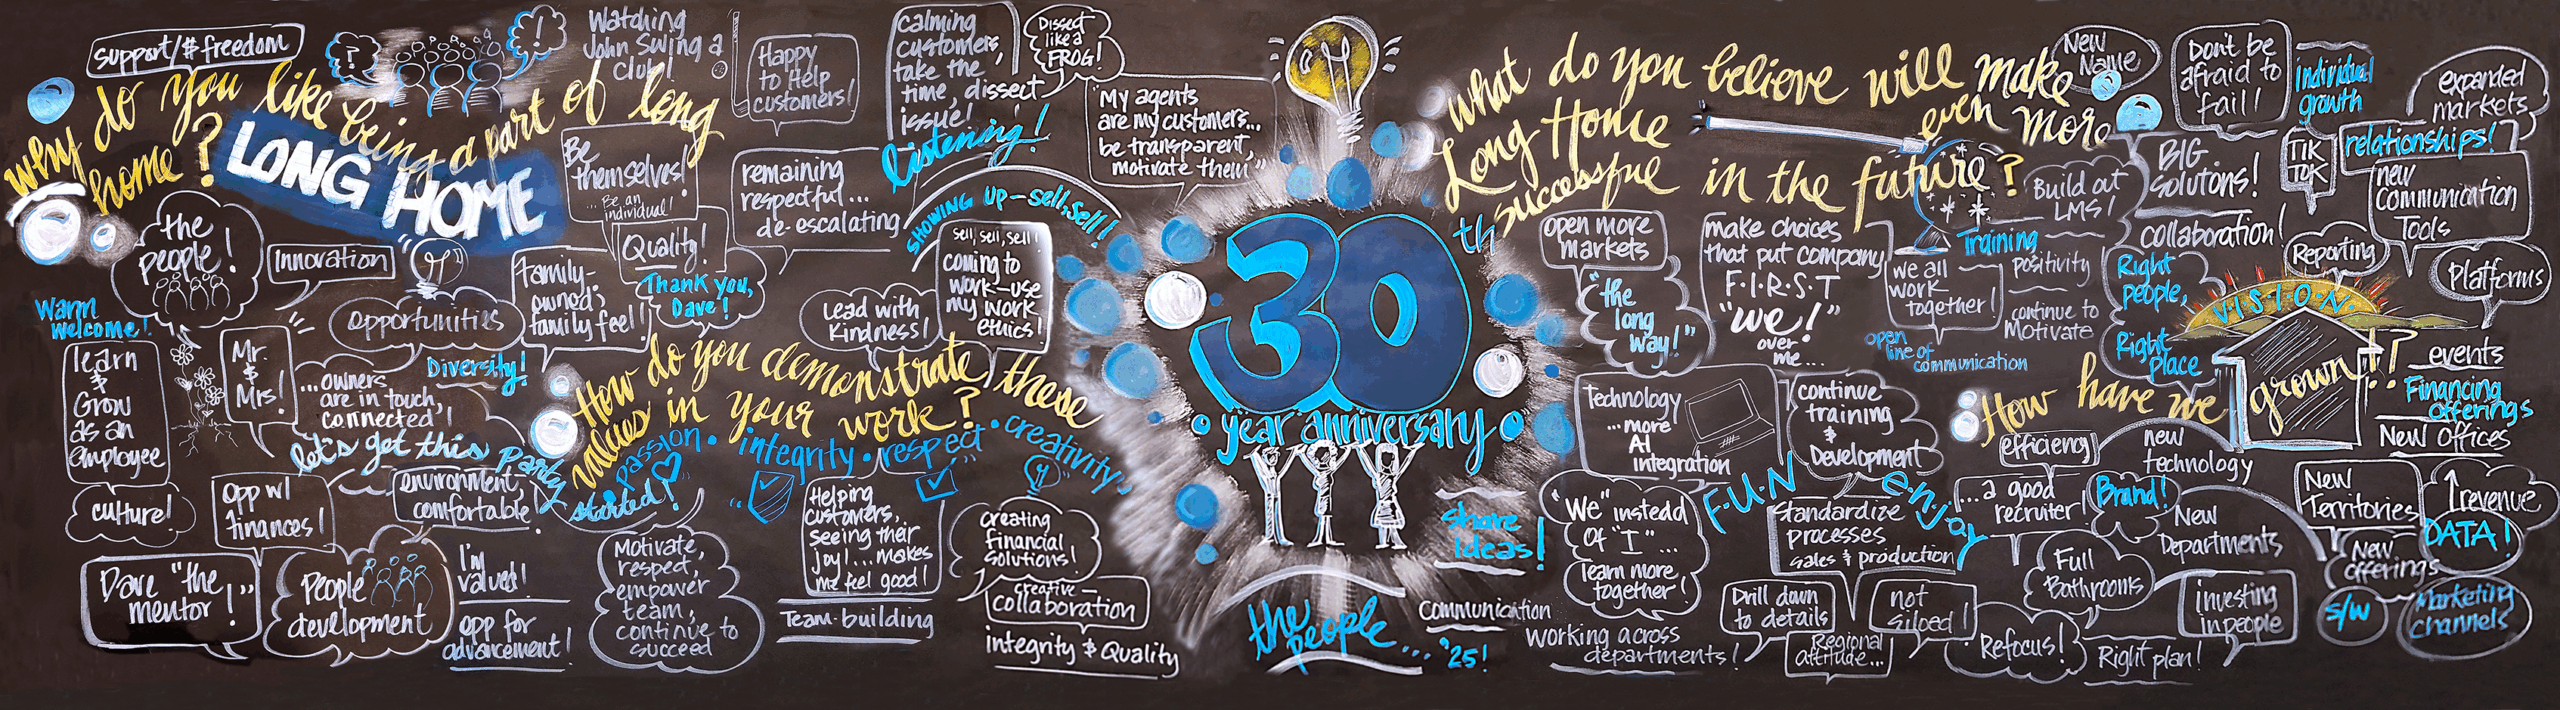 support/$ freedom
why do you like being a part of long
home?
LONG HOME
?
!
Watching
John Swing a
club!
Happy
to Help
customers!
calming
customers,
take the
time, dissect
issue!
listening!
Dissect
like a
FROG!
"My agents
are my customers...
be transparent,
motivate them"
Be
themselves!
...Be an
individual!
remaining
respectful...
de-escalating
the
people!
Innovation
Quality!
Thank you,
Dave!
family-
owned;
family feel!
opportunities
Warm
welcome!
learn
&
Grow
as an
employee
Mr.
&
Mrs!
...owners
are in touch,
connected!
Diversity!
let's get this party
started!
culture!
opp w/
finances!
environment,
comfortable
Dave "the
mentor!"
People
development
I'm
valued!
opp for
advancement!
SHOWING UP-sell, sell!
sell, sell, sell!
coming to
work-use
my work
ethics!
Lead with
Kindness!
How do you demonstrate these
values in your work?
passion • integrity • respect • creativity
Motivate,
respect,
empower
team,
continue to
succeed
Helping
customers,
seeing their
joy!...makes
me feel good!
Team-building
creating
financial
solutions!
creative-
collaboration
integrity & Quality
30th
year anniversary
the
people...
share
ideas!
Communication
'25!
What do you believe will make
Long Home even more
successful in the future?
New
Name
Don't be
afraid to
fail!
individual
growth
expanded
markets
relationships!
TIK
TOK
BIG
Solutons!
new
Communication
Tools
Build out
LMS!
collaboration!
Reporting
Platforms
open more
markets
"the
long
way!"
make choices
that put company
F.I.R.S.T
"we!"
over
me...
we all
work
together!
Training
positivity
continue to
Motivate
open
line of
communication
Right
people,
Right
place
V.I.S.I.O.N
How have we grown??
events
Financing
offerings
New Offices
Technology
...more
AI
integration
continue
training
&
Development
F.U.N
enjoy
"We" instead
of "I"...
learn more
together!
Standardize
processes
sales & production
Drill down
to details
not
siloed!
Working across
departments!
Regional
attitude...
efficiency
new
technology
...a good
recruiter!
Brand!
New
Departments
New
Territories
↑ revenue
DATA!
Full
Bathrooms
New
offerings
investing
in people
S/W
Marketing
channels
Refocus!
Right plan!